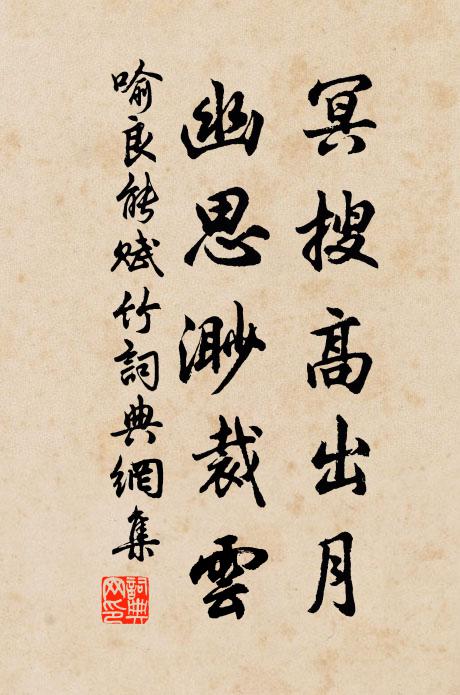 冥搜高出月
幽思渺裁雲
喻良能賦竹詞典網集
詞典網印